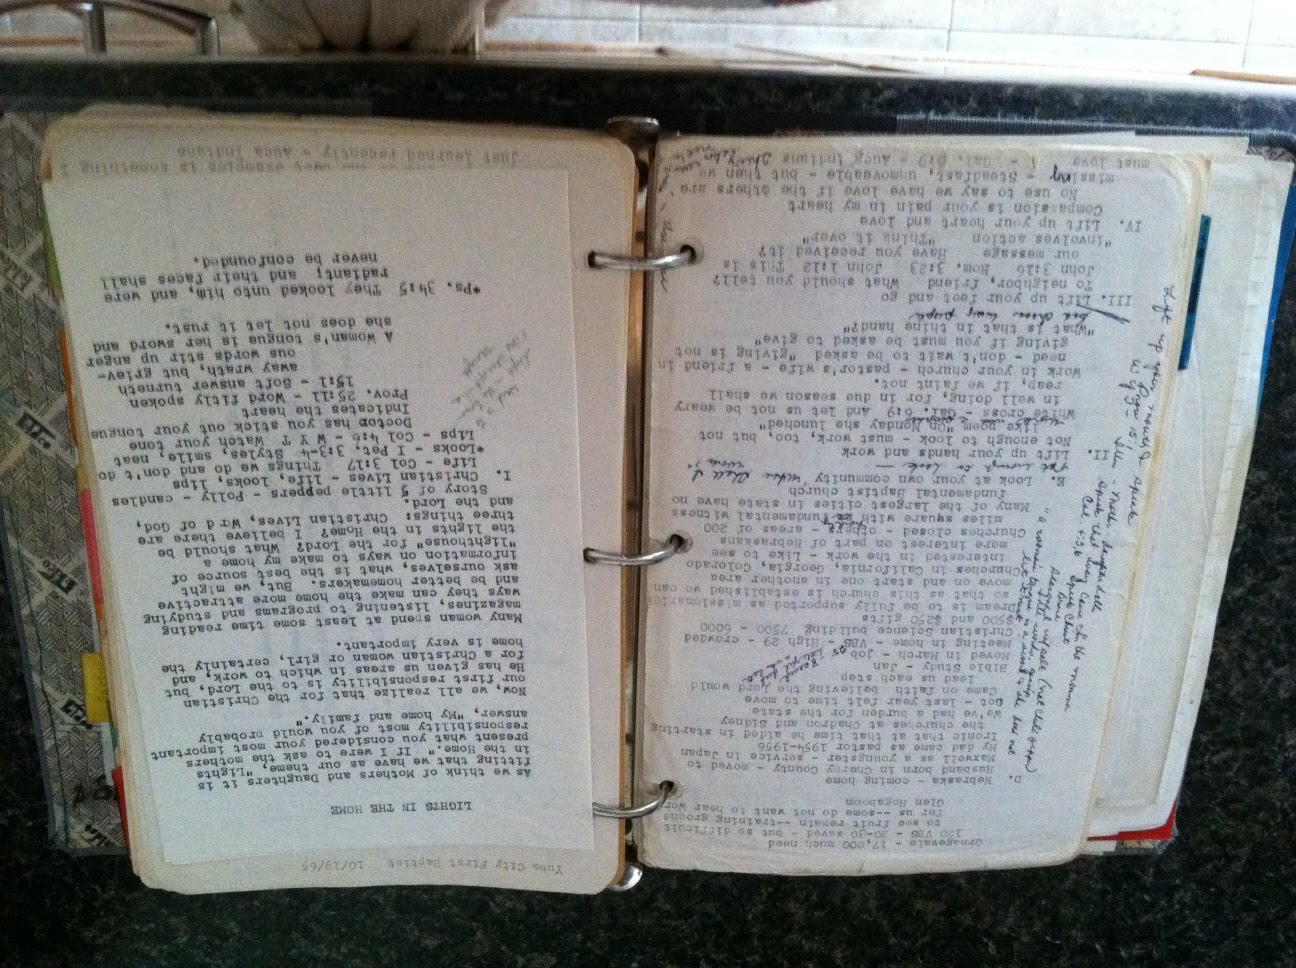 Ornagevale - 17,000 much need
120 VBS - 20-30 saved - but so difficult
to see fruit remain --training ground
for us --some do not want to hear wor
Glen Hogaboom
D. Nebraska - coming home
Husband born in Cherry County - moved to
Maxwell as a youngster - service in Japan
My dad came as pastor 1954-1956
Ironic that at that time he aided in starting
the churches at Chadron and Sidney
We've had a burden for the state
Oct - last year felt time to move
Came on faith believing the Lord would
lead us each step
Bible Study - Jan
Moved in March - Job
Meeting in home - VBS - High 29 - crowded
Christian Science building 7500 - 6000
$500 and $250 gifts
Dream is to be fully supported as missionaries
so that as this church is established we can
move on and start one in another area
Churches in California, Georgia, Colorado
interested in the work - Like to see
more interest on part of Nebraskans
Churches closed - others - areas of 200
miles square with no fundamental witness
Many of the largest cities in state have no
fundamental Baptist church
E. Look at your own community
Not enough to look -
II. Lift up your hands and work
Not enough to look - must work, too, but not
like poem "On Monday she lunched"
White cross - Gal. 6:9 And let us not be weary
in well doing, for in due season we shall
reap, if we faint not.
Work in your church - pastor's wife - a friend in
need - don't wait to be asked "giving is not
giving if you must be asked to give"
"What is that in thine hand?"
III. Lift up your feet and go
To neighbor, friend What should you tell?
John 3:16, Rom. 3:23 John 1:12 This is
our message Have you received it?
"involves action "Think it over"
IV. Lift up your heart and love
Compassion is your pain in my heart
No use to say we have love if the others are
missing - Steadfast, unmoveable - but then we
must love - Gal. 6:9 - Auca Indians
Lift up your mouth & speak
Yuba City First Baptist 10/19/65
LIGHTS IN THE HOME
As we think of Mothers and Daughters it is
fitting that we have as our theme, "Lights
in the Home." If I were to ask the mothers
present what you considered your most important
responsibility most of you would probably
answer, "My home and family."
Now, we all realize that for the Christian
our first responsibility is to the Lord, but
He has given us areas in which to work, and
for a Christian woman or girl, certainly the
home is very important.
Many women spend at least some time reading
magazines, listening to programs and studying
ways they can make the home more attractive
and be better homemakers. But, we might
ask ourselves, what is the best source of
information on ways to make my home a
"lighthouse" for the Lord? What should be
the lights in the Home? I believe there are
three things: Christian Lives, Wrd of God,
and the Lord.
Story of 5 little peppers - Polly - candles
I. Christian Lives - life, looks, lips
Life - Col 3:17 Things we do and don't do
*Looks - I Pet. 3:3-4 Styles, smile, neat
Lips - Col 4:6 - W Y T Watch your tone
Doctor has you stick out your tongue
Indicates the heart
Prov. 25:11 - Word fitly spoken
15:1 - Soft answer turneth
away wrath, but griev-
ous words stir up anger
A Woman's tongue is her sword and
she does not let it rust.
*Ps. 34:5 They looked unto him, and were
radiant; and their faces shall
never be confounded.
Just learned recently - Auca Indians